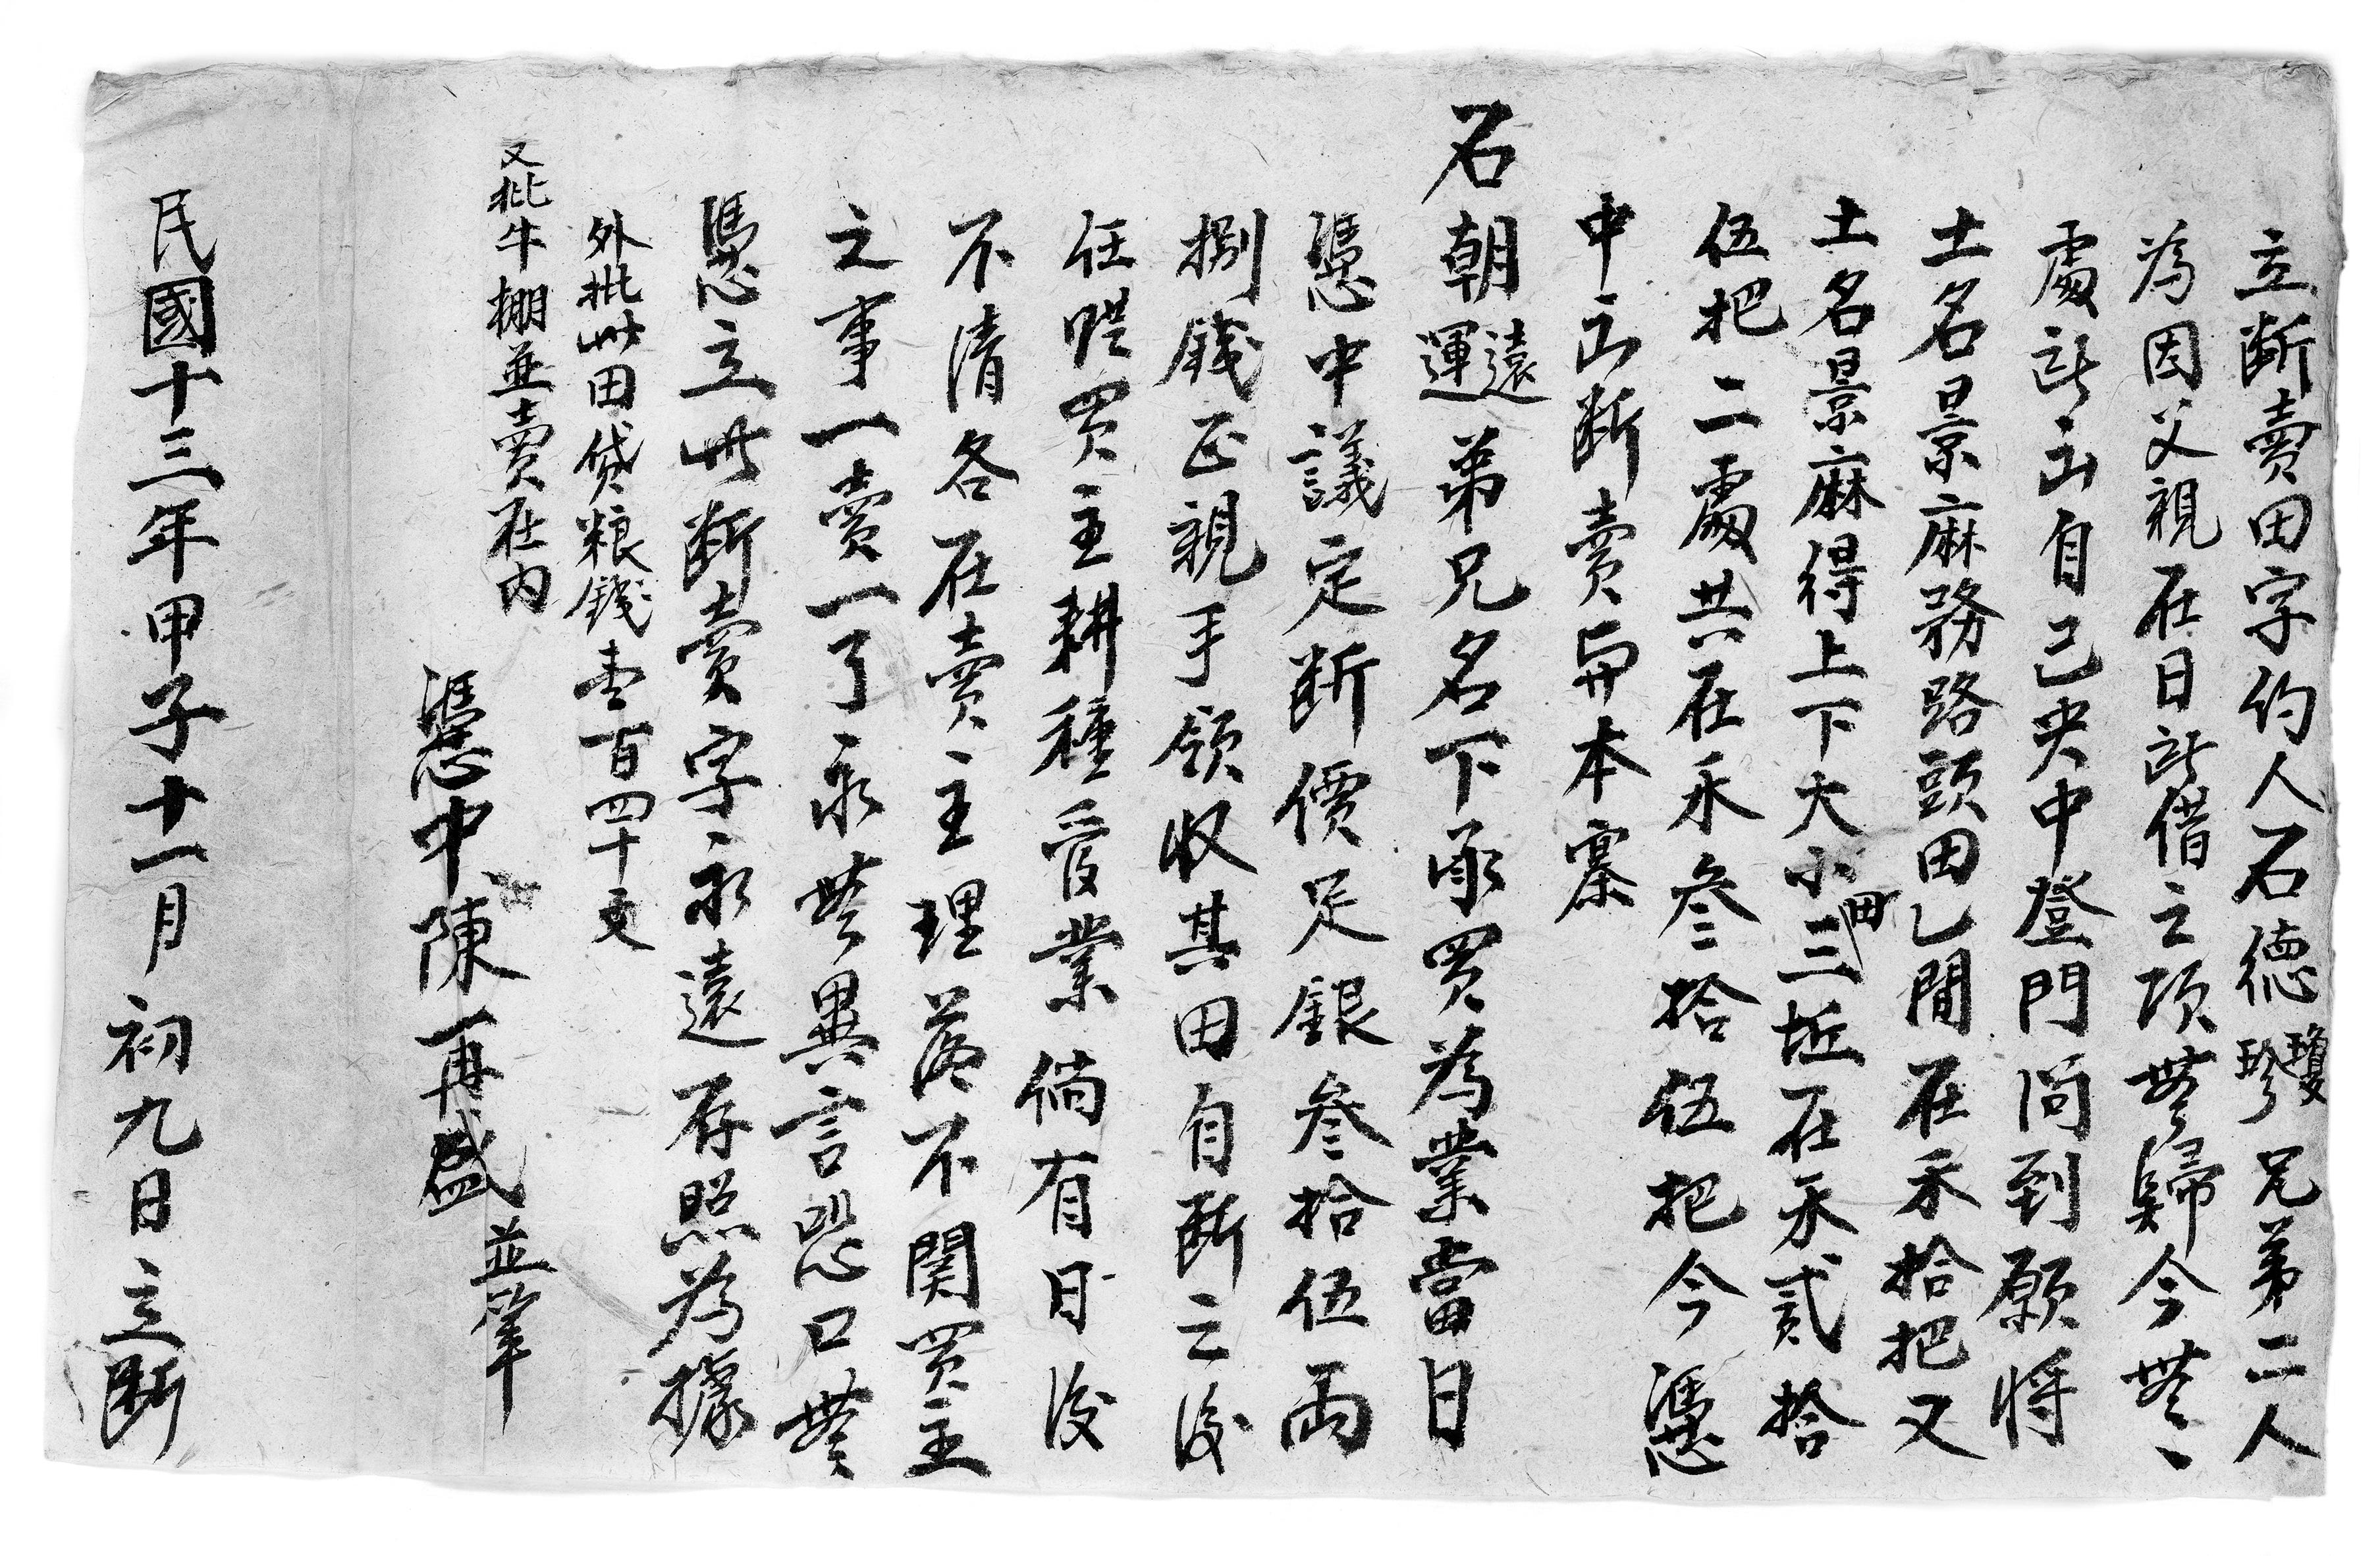 立断賣田字約人石德瓊珍兄弟二人
為因父親在日所借之項無歸今無、
處所出自己央中登門問到願将
土名景麻務路頭田乙間在禾拾把又
土名景麻得上下大小田三坵在禾貳拾
伍把二處共在禾叁拾伍把今憑
中出断賣與本寨
石朝遠運弟兄名下承買為業當日
憑中議定断價足銀叁拾伍両
捌錢正親手領收其田自断之後
任凴買主耕種受業倘有日後
不清各在賣主理落不関買主
之事一賣一了永無異言恐口無
憑立此断賣字永遠存照為據
外批此田贷粮錢壹百四十文
又批牛棚並賣在内
憑中陳再盛並筆
民國十三年甲子十一月初九日立断